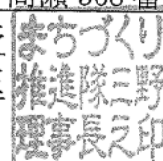 まちづくり
推進隊三野
理事長之印